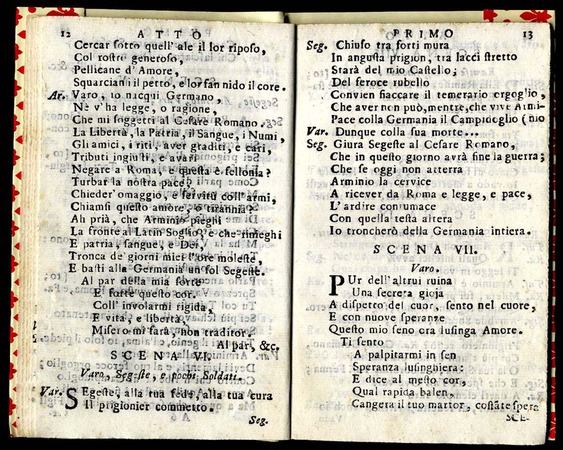 12 ATTO
Cercar sotto quell' ale il lor riposo,
Col rostro generoso,
Pellicane d' Amore,
Squarciansi il petto, e lor fan nido il core.
Ar. Varo, io nacqui Germano,
Nè v' ha legge, o ragione,
Che mi soggetti al Cesare Romano.
La Libertà, la Patria, il Sangue, i Numi,
Gli amici, i riti, aver graditi, e cari,
Tributi ingiusti, e avari
Negare a Roma, e questa è fellonia?
Turbar la nostra pace,
Chieder' omaggio, e servitù coll' armi,
Chiamsi questo amore, o tirannia?
Ah prià, che Arminio pieghi
La fronte al Latin Soglio, e che rinieghi
E patria, sangue, e Dei,
Tronca de' giorni miei l'ore moleste,
E basti alla Germania un sol Segeste.
Al par della mia sorte
E forte questo cor.
Coll' involarmi rigida,
E vita, e libertà,
Misero mi farà, non traditor.
Al par, &c.
SCENA VI.
Varo, Segeste, e pochi Soldati.
Var. SEgeste, alla tua fede, alla tua cura
Il prigionier commetto.
Seg.
PRIMO 13
Seg. Chiuso tra forti mura
In angusta prigion, tra lacci stretto
Starà del mio Castello;
Del feroce rubello
Convien fiaccare il temerario orgoglio,
Che aver non può, mentre, che vive Armi-
Pace colla Germania il Campidoglio (nio
Var. Dunque colla sua morte...
Seg. Giura Segeste al Cesare Romano,
Che in questo giorno avrà fine la guerra;
Che se oggi non atterra
Arminio la cervice
A ricever da Roma e legge, e pace,
L' ardire contumace
Con quella testa altera
Io troncherò della Germania intiera.
SCENA VII.
Varo.
PUr dell' altrui ruina
Una secreta gioja
A dispetto del cuor, sento nel cuore,
E con nuove speranze
Questo mio seno ora lusinga Amore.
Ti sento
A palpitarmi in sen
Speranza lusinghiera:
E dice al mesto cor,
Qual rapida balen,
Cangerà il tuo martor, costāte spera
SCE-